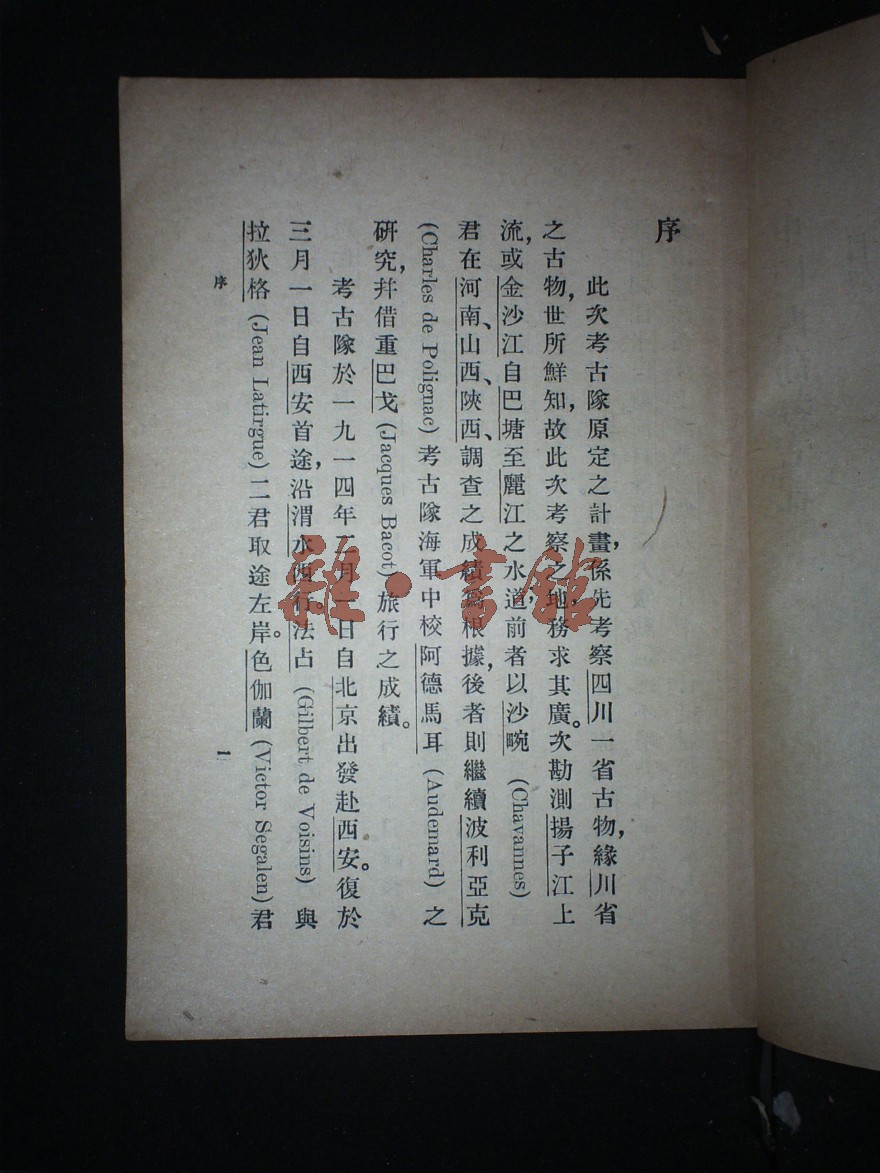 序
此次考古隊原定之計畫,係先考察四川一省古物,緣川省
之古物,世所鮮知,故此次考察之地,務求其廣。次勘測揚子江上
流,或金沙江自巴塘至麗江之水道,前者以沙畹 (Chavannes)
君在河南、山西、陝西、調查之成績爲根據,後者則繼續波利亞克
(Charles de Polignac) 考古隊海軍中校阿德馬耳 (Audemard) 之
研究,幷借重巴戈 (Jacques Bacot) 旅行之成績。
考古隊於一九一四年二月一日自北京出發赴西安。復於
三月一日自西安首途,沿渭水西行。法占 (Gilbert de Voisins) 與
拉狄格 (Jean Latirgue) 二君取途左岸。色伽蘭 (Victor Segalen) 君
序 一
雜·書館